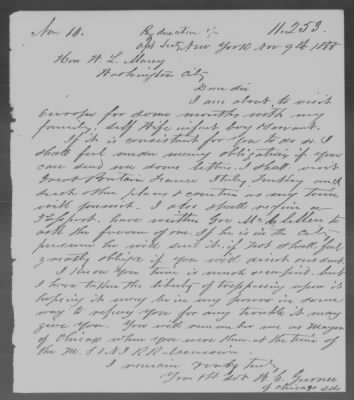 Nov 10. 11.253
New York Nov 9th 1855
Hon W. L. Marcy
Washington City
Dear Sir
I am about to visit
Europe for some months with my
family. Self Wife infant boy & Servant.
If it is consistant for you to do so I
shall feel under many obligation if you
can send me some letters. I shall visit
Great Britain France Italy Turkey and
such other places & countries as my time
will permit. I also shall require a
Passport. have written Gov McClelland to
ask the favour of one. If he is in the City
presume he will send it. if not I shall feel
greatly obliged if you will direct one sent.
I know your time is much occupied. but
I have taken the liberty of tresspassing upon it
hoping it may be in my power in some
way to repay you for any trouble it may
give you. You will remember me as Mayor
of Chicago when you were there at the time of
the M. S & N I RR excursion.
I remain very truly
Your Obt Svt W. S. Gurnee
of Chicago Ills